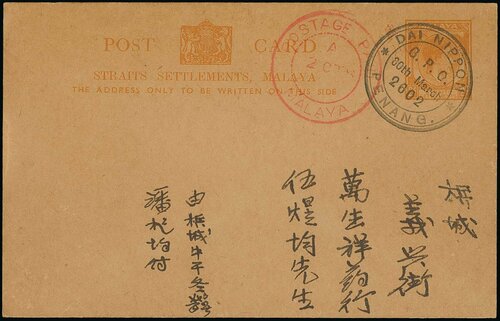 POST CARD
STRAITS SETTLEMENTS, MALAYA
THE ADDRESS ONLY TO BE WRITTEN ON THIS SIDE
POSTAGE
A
2 C
MALAYA
* DAI NIPPON *
G.P.O.
30th March
2602
PENANG.
梹城
義興街
萬生祥药行
伍焜均先生
由梹城牛干冬
潘松均付